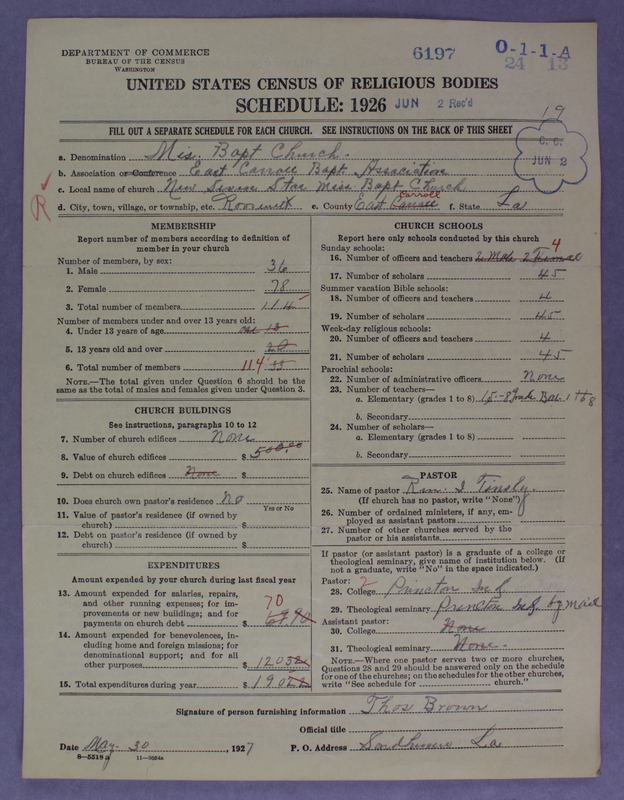 DEPARTMENT OF COMMERCE
BUREAU OF THE CENSUS
WASHINGTON
6197
O-1-1-A
24 13
UNITED STATES CENSUS OF RELIGIOUS BODIES
SCHEDULE: 1926
JUN 2 Rec'd
19
FILL OUT A SEPARATE SCHEDULE FOR EACH CHURCH. SEE INSTRUCTIONS ON THE BACK OF THIS SHEET
C. C.
JUN 2
a. Denomination Mis. Bapt Church.
b. Association or Conference East Carroll Bapt Association
c. Local name of church New Star Miss Bapt Church
R
d. City, town, village, or township, etc. e. County East Carroll f. State La
MEMBERSHIP
Report number of members according to definition of
member in your church
Number of members, by sex:
1. Male 36
2. Female 78
3. Total number of members 114
Number of members under and over 13 years old:
4. Under 13 years of age
5. 13 years old and over
6. Total number of members 114
NOTE.—The total given under Question 6 should be the
same as the total of males and females given under Question 3.
CHURCH BUILDINGS
See instructions, paragraphs 10 to 12
7. Number of church edifices None
8. Value of church edifices $ 500.00
9. Debt on church edifices None $
10. Does church own pastor's residence No
Yes or No
11. Value of pastor's residence (if owned by
church) $
12. Debt on pastor's residence (if owned by
church) $
EXPENDITURES
Amount expended by your church during last fiscal year
13. Amount expended for salaries, repairs,
and other running expenses; for im-
provements or new buildings; and for
payments on church debt $ 70
14. Amount expended for benevolences, in-
cluding home and foreign missions; for
denominational support; and for all
other purposes $ 120
15. Total expenditures during year $ 190
CHURCH SCHOOLS
Report here only schools conducted by this church
Sunday schools:
16. Number of officers and teachers 4
17. Number of scholars 45
Summer vacation Bible schools:
18. Number of officers and teachers 4
19. Number of scholars 45
Week-day religious schools:
20. Number of officers and teachers 4
21. Number of scholars 45
Parochial schools:
22. Number of administrative officers None
23. Number of teachers—
a. Elementary (grades 1 to 8)
b. Secondary
24. Number of scholars—
a. Elementary (grades 1 to 8)
b. Secondary
PASTOR
25. Name of pastor
(If church has no pastor, write "None")
26. Number of ordained ministers, if any, em-
ployed as assistant pastors
27. Number of other churches served by the
pastor or his assistants
If pastor (or assistant pastor) is a graduate of a college or
theological seminary, give name of institution below. (If
not a graduate, write "No" in the space indicated.)
Pastor: 2
28. College Princton
29. Theological seminary Princton by mail
Assistant pastor:
30. College None
31. Theological seminary None.
NOTE.—Where one pastor serves two or more churches,
Questions 28 and 29 should be answered only on the schedule
for one of the churches; on the schedules for the other churches,
write "See schedule for church."
Signature of person furnishing information Thos Brown
Official title
Date May 30, 1927 P. O. Address La
8—5518 a 11—9054a